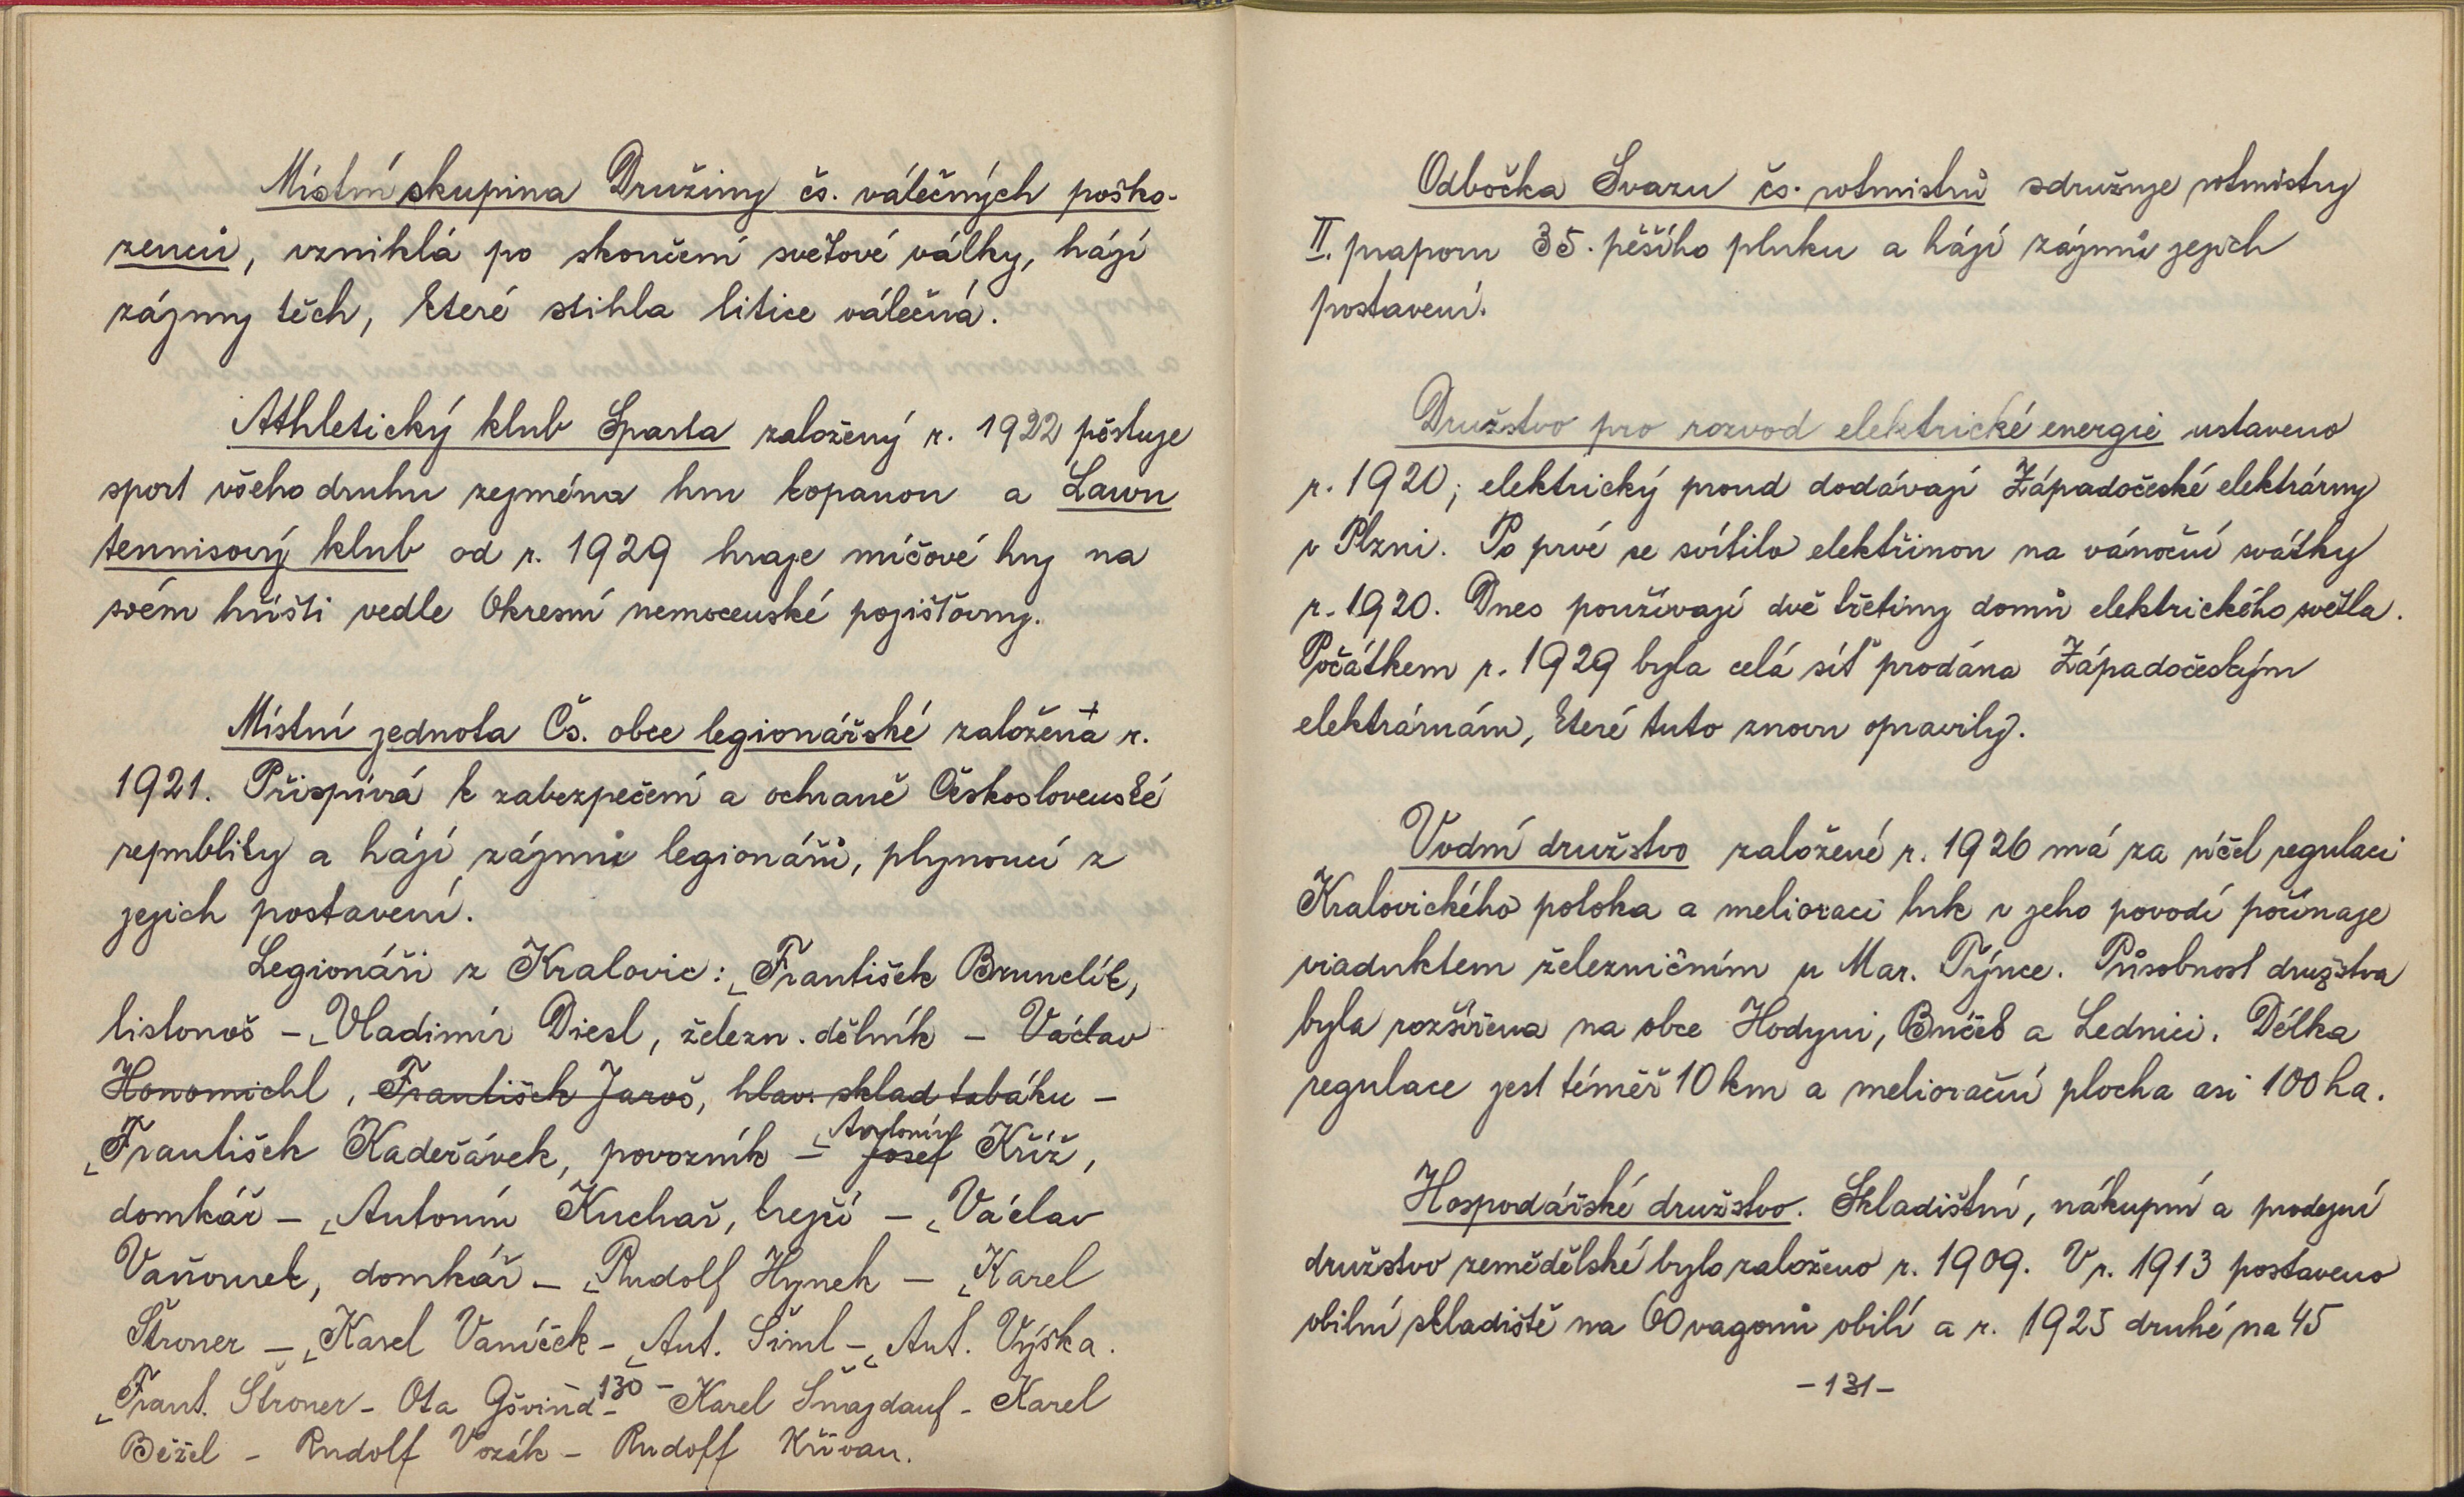 Místní skupina Družiny čs. válečných poško-
zenců, vzniklá po skončení světové války, hájí
zájmy těch, které stihla litice válečná.
Athletický klub Sparta založený r. 1922 pěstuje
sport všeho druhu zejména hru kopanou a Lawn
tennisový klub od r. 1929 hraje míčové hry na
svém hřišti vedle Okresní nemocenské pojišťovny.
Místní jednota Čs. obce legionářské založena r.
1921. Přispívá k zabezpečení a ochraně Československé
republiky a hájí zájmů legionářů, plynoucí z
jejich postavení.
Legionáři z Kralovic: František Brunclík,
listonoš - Vladimír Diesl, železn. dělník - Václav
Honomichl, František Jaroš, hlav. sklad tabáku -
František Kadeřávek, povozník - Antonín Josef Kříž,
domkář - Antonín Kuchař, krejčí - Václav
Vaňourek, domkář - Rudolf Hynek - Karel
Štroner - Karel Vaníček - Ant. Šiml - Ant. Výška.
Frant. Štroner - Ota Gšvind - Karel Šnajdauf - Karel
- 130 -
Běžel - Rudolf Vozák - Rudolf Křivan.
Odbočka Svazu čs. rotmistrů sdružuje rotmistry
II. praporu 35. pěšího pluku a hájí zájmů jejich
postavení.
Družstvo pro rozvod elektrické energie ustaveno
r. 1920; elektrický proud dodávají Západočeské elektrárny
v Plzni. Po prvé se svítilo elektřinou na vánoční svátky
r. 1920. Dnes používají dvě třetiny domů elektrického světla.
Počátkem r. 1929 byla celá síť prodána Západočeským
elektrárnám, které tuto znovu opravily.
Vodní družstvo založené r. 1926 má za účel regulaci
Kralovického potoka a melioraci luk v jeho povodí počínaje
viaduktem železničním u Mar. Týnce. Působnost družstva
byla rozšířena na obce Hodyni, Bučeb a Lednici. Délka
regulace jest téměř 10 km a meliorační plocha asi 100 ha.
Hospodářské družstvo. Skladištní, nákupní a prodejní
družstvo zemědělské bylo založeno r. 1909. V r. 1913 postaveno
obilní skladiště na 60 vagonů obilí a r. 1925 druhé na 45
- 131 -